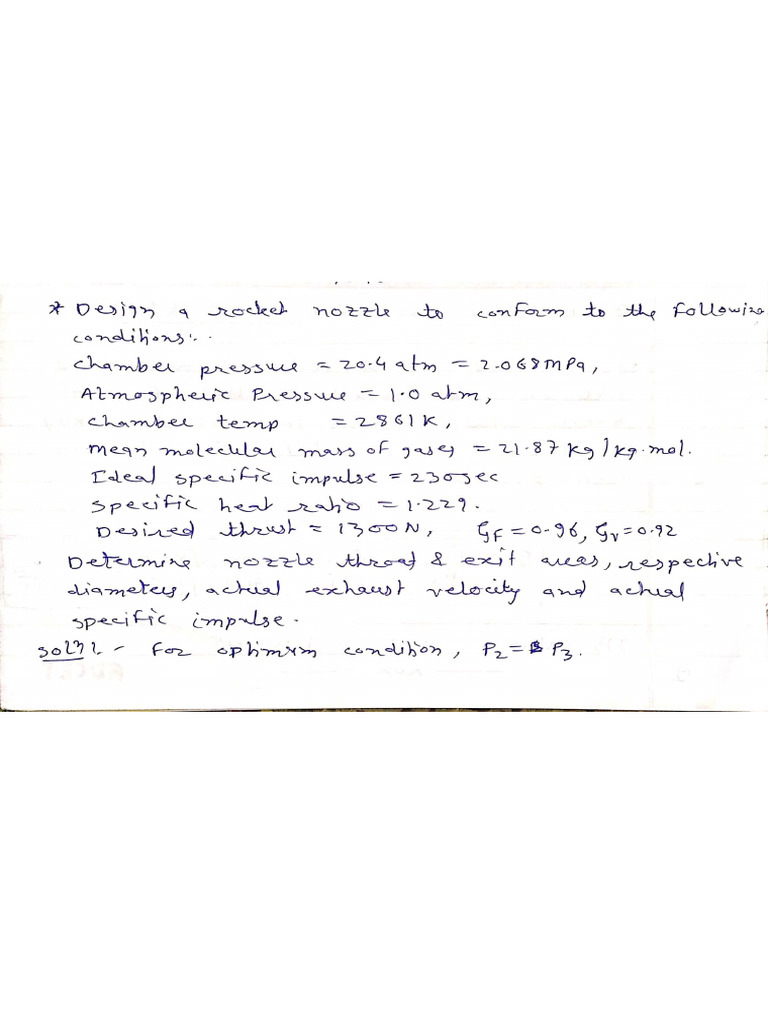 * Design a rocket nozzle to conform to the following
conditions:-
chamber pressure = 20.4 atm = 2.068MPa,
Atmospheric Pressure = 1.0 atm,
chamber temp = 2861K,
mean molecular mass of gases = 21.87 kg/kg.mol.
Ideal specific impulse = 230sec
specific heat ratio = 1.229.
Desired thrust = 1300N, ζF = 0.96, ζv = 0.92
Determine nozzle throat & exit areas, respective
diameters, actual exhaust velocity and actual
specific impulse.
Soln:- For optimum condition, P2 = P3.